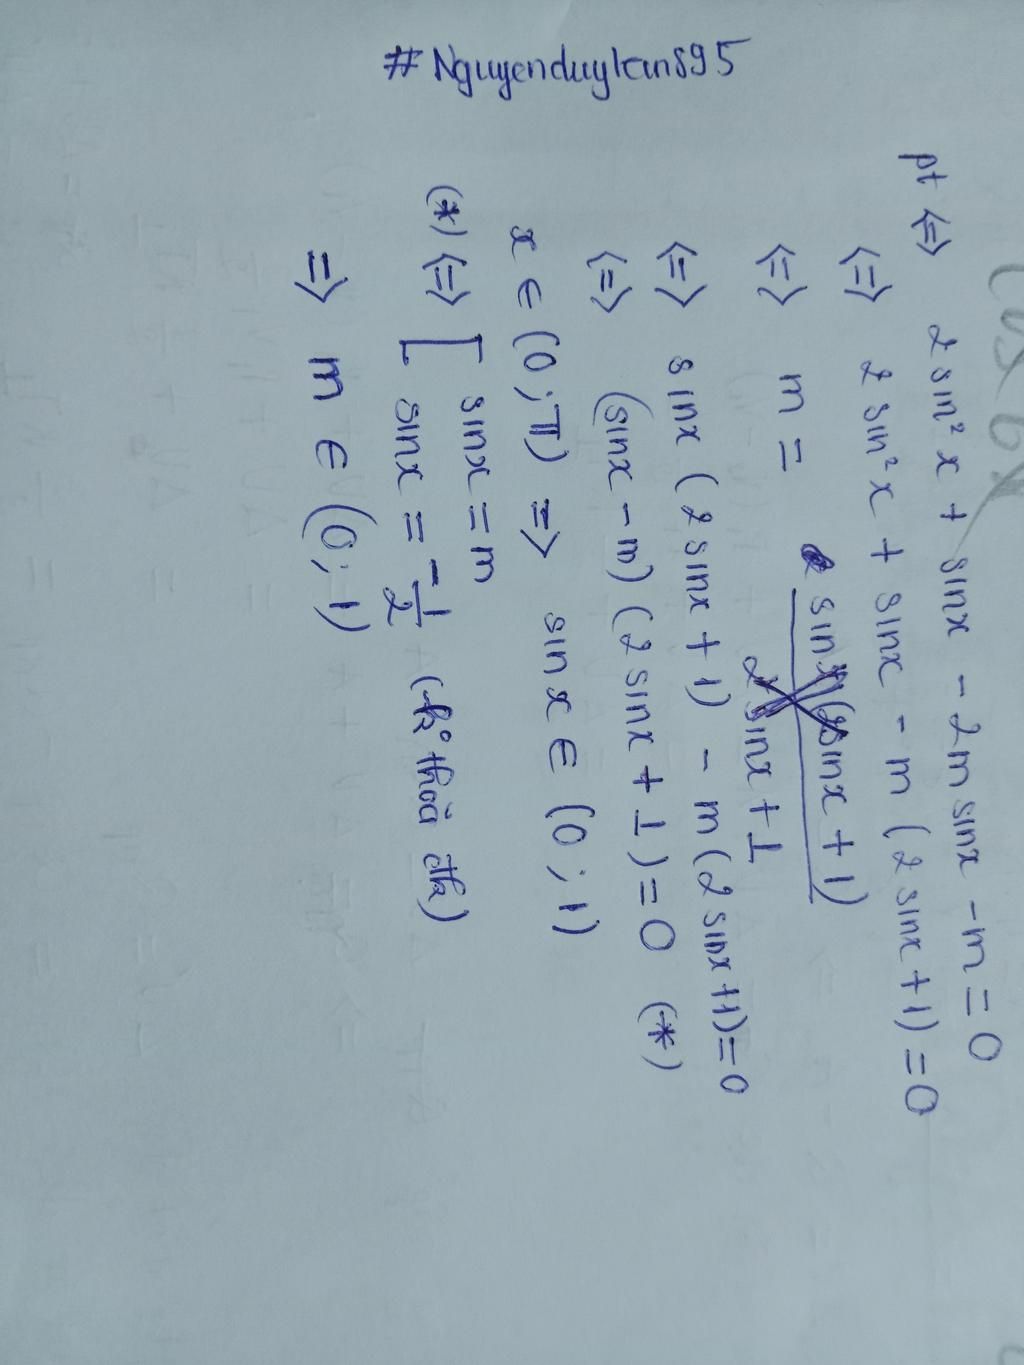 pt <=> 2 sin² x + sinx - 2m sinx - m = 0
<=> 2 sin² x + sinx - m (2 sinx + 1) = 0
<=> m = sinx (2sinx + 1)
2 sinx + 1
<=> sinx (2 sinx + 1) - m (2 sinx + 1) = 0
<=> (sinx - m) (2 sinx + 1) = 0 (*)
x ∈ (0 ; π) => sin x ∈ (0 ; 1)
(*) <=> [ sinx = m
sinx = -1/2 (k° thoã đk)
=> m ∈ (0 ; 1)